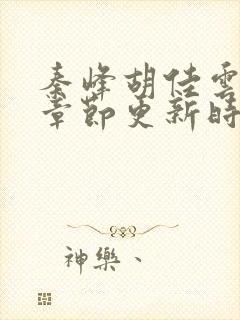 秦峰胡佳雲
章節更新時
神樂、